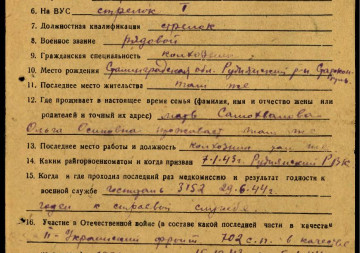 6. На ВУС стрелок 1
7. Должностная квалификация стрелок
8. Военное звание рядовой
9. Гражданская специальность колхозник
10. Место рождения обл. р-н
11. Последнее место жительства там же
12. Где проживает в настоящее время семья (фамилия, имя и отчество жены или
родителей и точный их адрес) мать
Осиповна проживает там же
13. Последнее место работы и должность колхозник там же
14. Каким райгорвоенкоматом и когда призван РВК
15. Когда и где проходил раз медкомиссию и результат годности к
военной службе госпиталь 3152 29.6.44 г.
годен к строевой службе
16. Участие в Отечественной войне (в составе какой последней части в качестве
II-Украинский фронт 702 с.п. в качестве